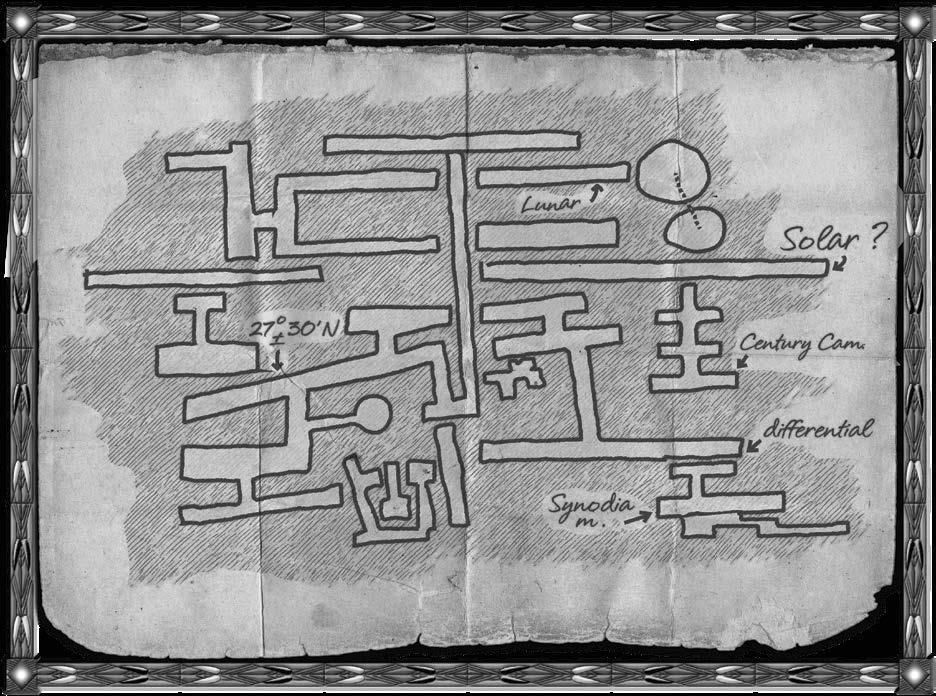 Lunar
Solar ?
27° ± 30'N
Century Cam.
differential
Synodia
m.